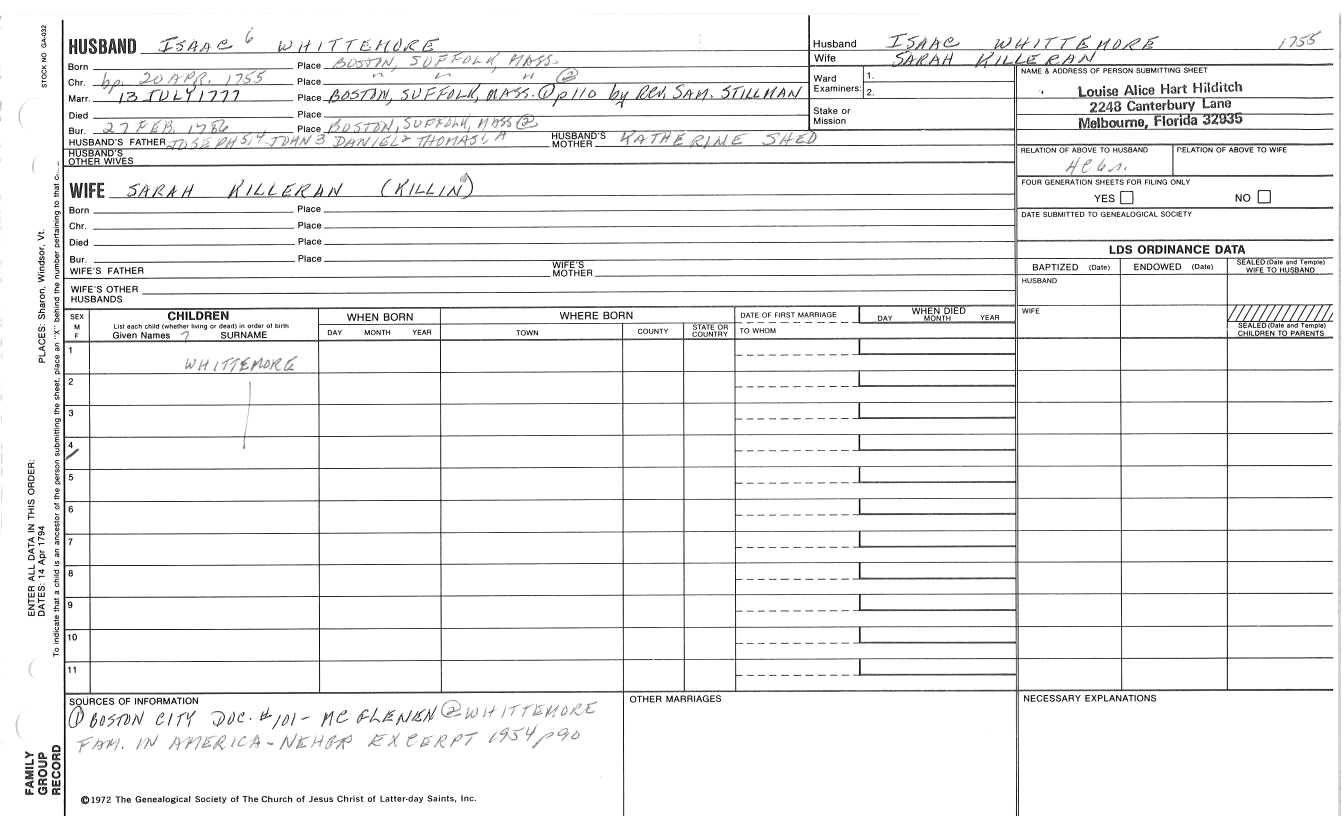 STOCK NO GA-032
HUSBAND ISAAC 6 WHITTEMORE
Born Place BOSTON, SUFFOLK, MASS.
Chr. bp. 20 APR. 1755 Place " " " ②
Marr. 13 JULY 1777 Place BOSTON, SUFFOLK, MASS. ① p 110 by REV. SAM. STILLMAN
Died Place
Bur. 27 FEB. 1786 Place BOSTON, SUFFOLK, MASS ②
HUSBAND'S FATHER JOSEPH 5,4 JOHN 3 DANIEL 2 THOMAS 1, A HUSBAND'S MOTHER KATHERINE SHED
HUSBAND'S OTHER WIVES
WIFE SARAH KILLERAN (KILLIN)
Born Place
Chr. Place
Died Place
Bur. Place
WIFE'S FATHER WIFE'S MOTHER
WIFE'S OTHER HUSBANDS
Husband ISAAC WHITTEMORE 1755
Wife SARAH KILLERAN
Ward Examiners: 1. 2.
Stake or Mission
NAME & ADDRESS OF PERSON SUBMITTING SHEET
Louise Alice Hart Hilditch
2248 Canterbury Lane
Melbourne, Florida 32935
RELATION OF ABOVE TO HUSBAND RELATION OF ABOVE TO WIFE
FOUR GENERATION SHEETS FOR FILING ONLY
YES NO
DATE SUBMITTED TO GENEALOGICAL SOCIETY
LDS ORDINANCE DATA
BAPTIZED (Date) ENDOWED (Date) SEALED (Date and Temple) WIFE TO HUSBAND
HUSBAND
WIFE
SEALED (Date and Temple) CHILDREN TO PARENTS
SEX M F
CHILDREN
List each child (whether living or dead) in order of birth
Given Names ? SURNAME
WHEN BORN
DAY MONTH YEAR
WHERE BORN
TOWN COUNTY STATE OR COUNTRY
DATE OF FIRST MARRIAGE
TO WHOM
WHEN DIED
DAY MONTH YEAR
1 WHITTEMORE
2
3
4
5
6
7
8
9
10
11
SOURCES OF INFORMATION
① BOSTON CITY DOC. #101 - MC GLENEN ② WHITTEMORE
FAM. IN AMERICA - NEHGR EXCERPT 1954 p90
OTHER MARRIAGES
NECESSARY EXPLANATIONS
©1972 The Genealogical Society of The Church of Jesus Christ of Latter-day Saints, Inc.
FAMILY GROUP RECORD
ENTER ALL DATA IN THIS ORDER:
DATES: 14 Apr 1794
PLACES: Sharon, Windsor, Vt.
To indicate that a child is an ancestor of the person submitting the sheet, place an "X" behind the number pertaining to that